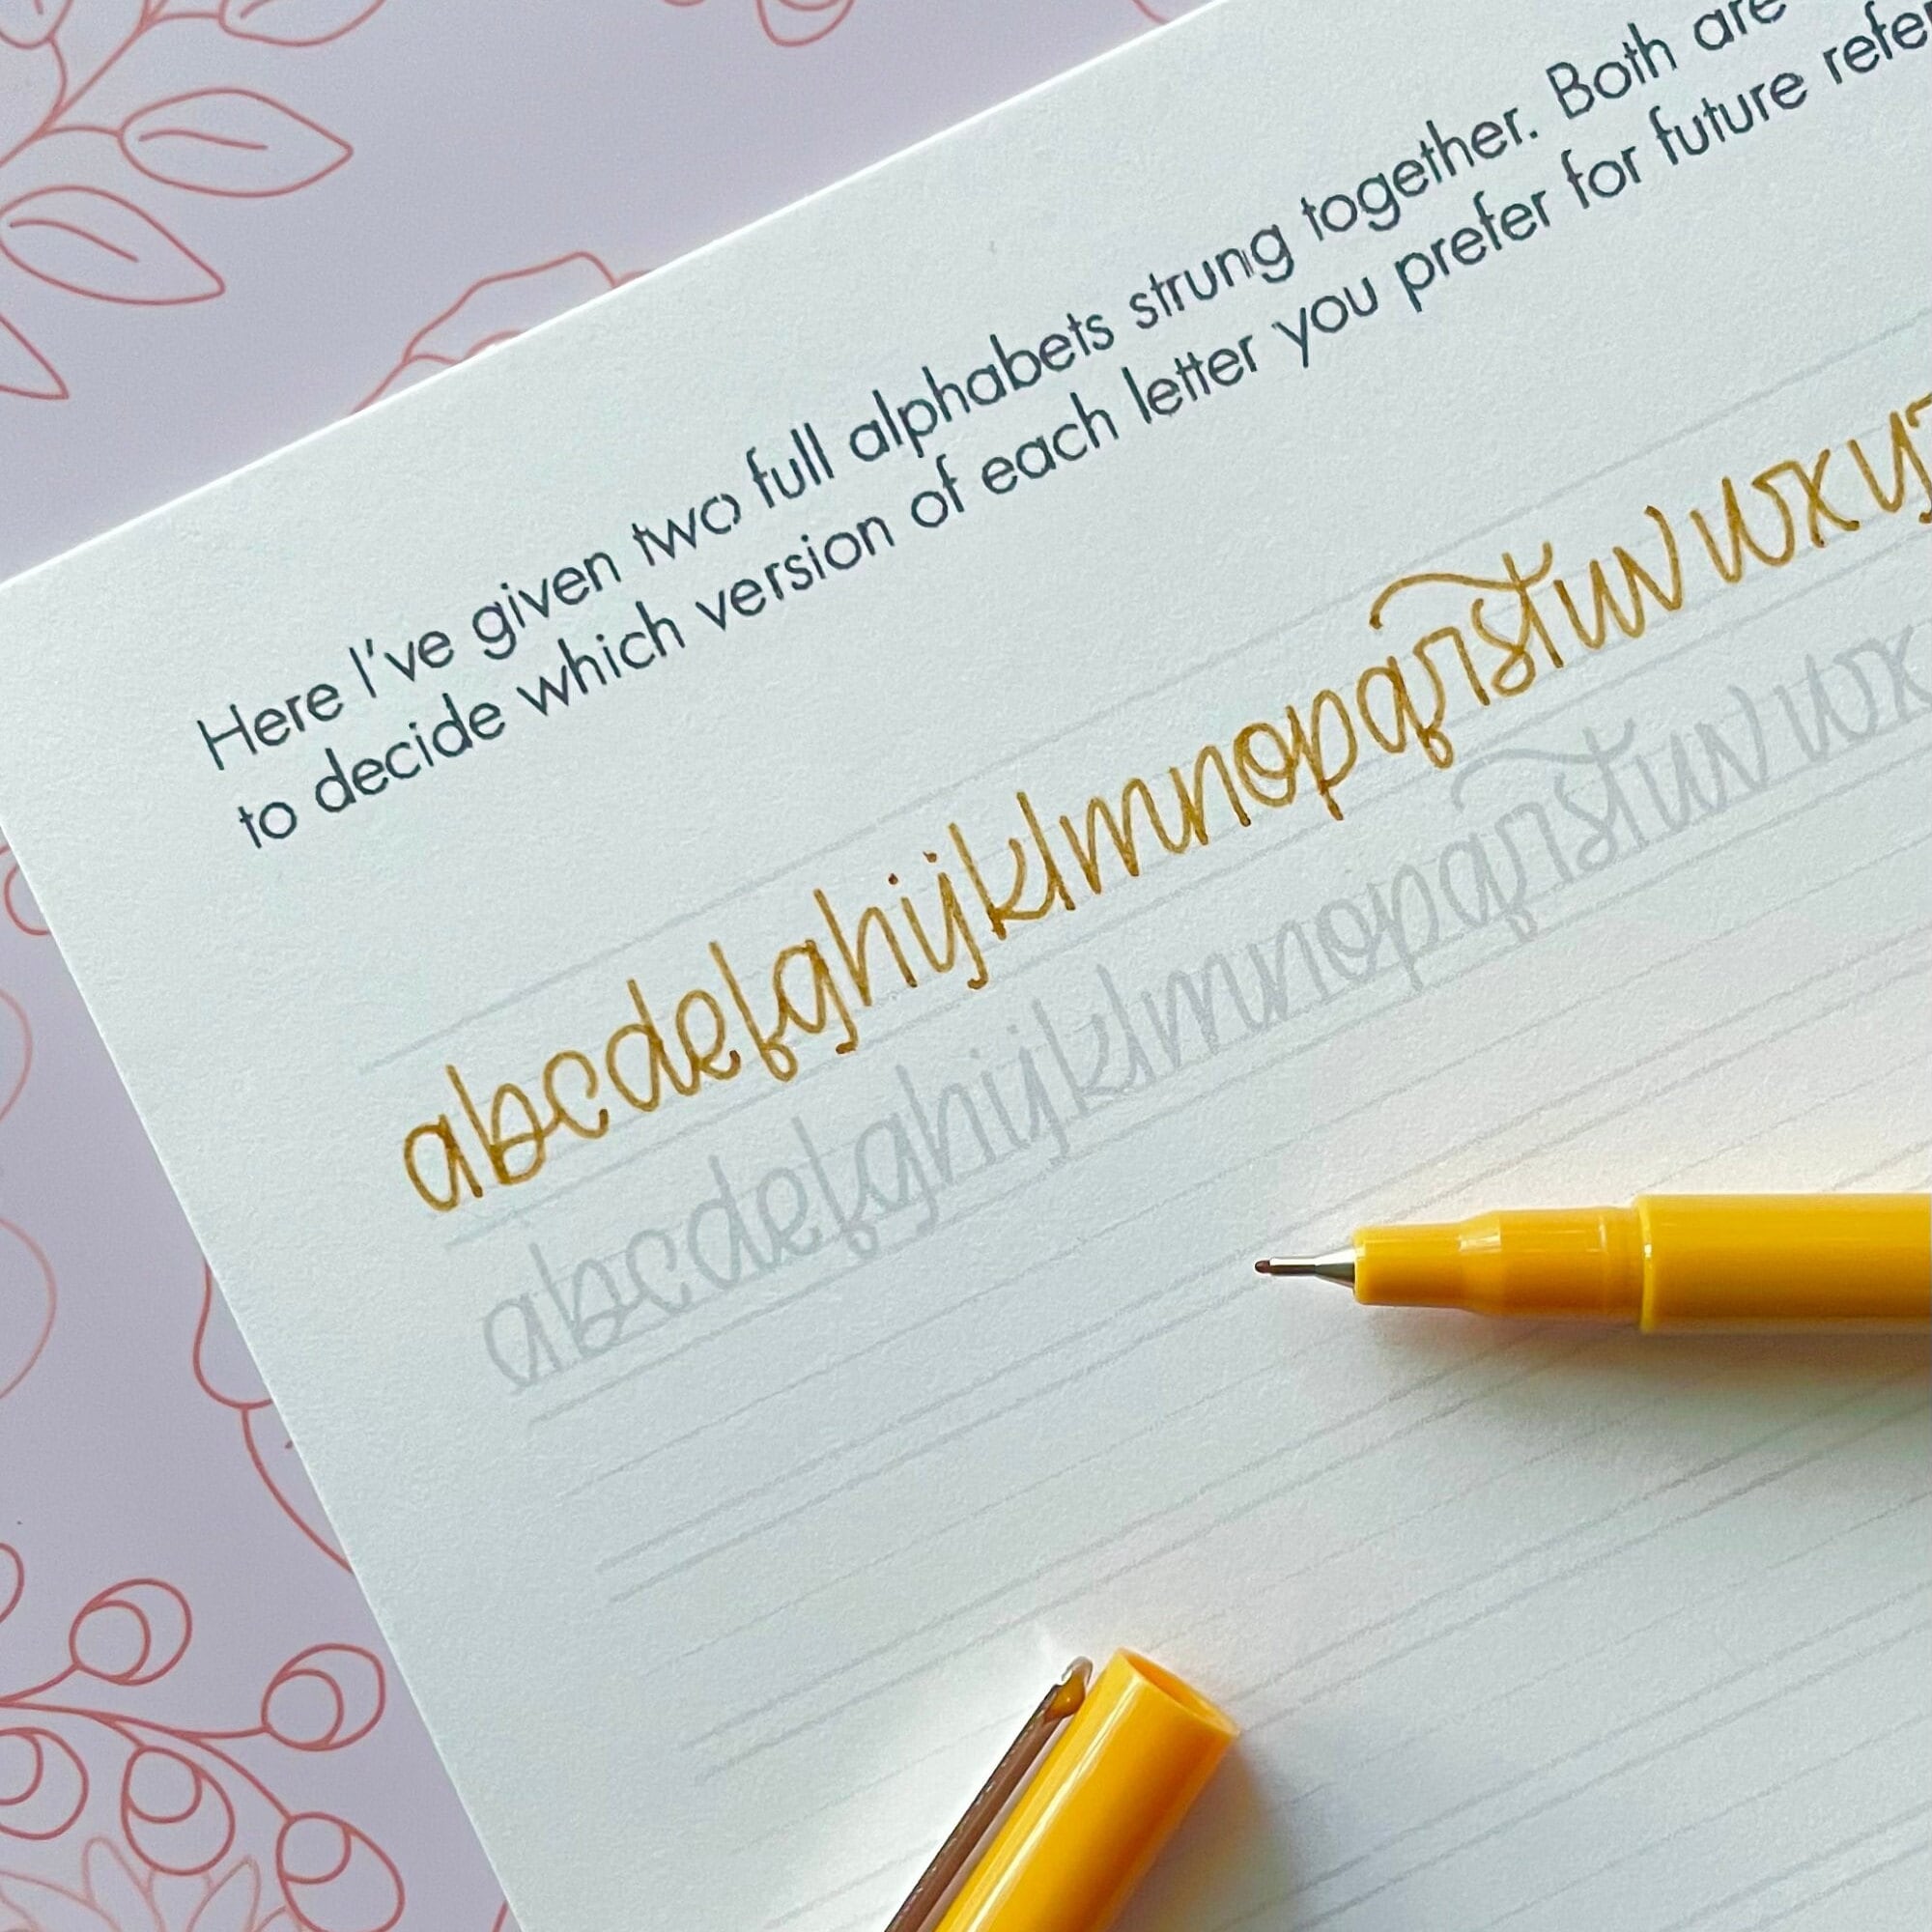 Here I've given two full alphabets strung together. Both are
to decide which version of each letter you prefer for future
abcdefghijklmnopqrstuvwxy
abcdefghijklmnopqrstuvwx